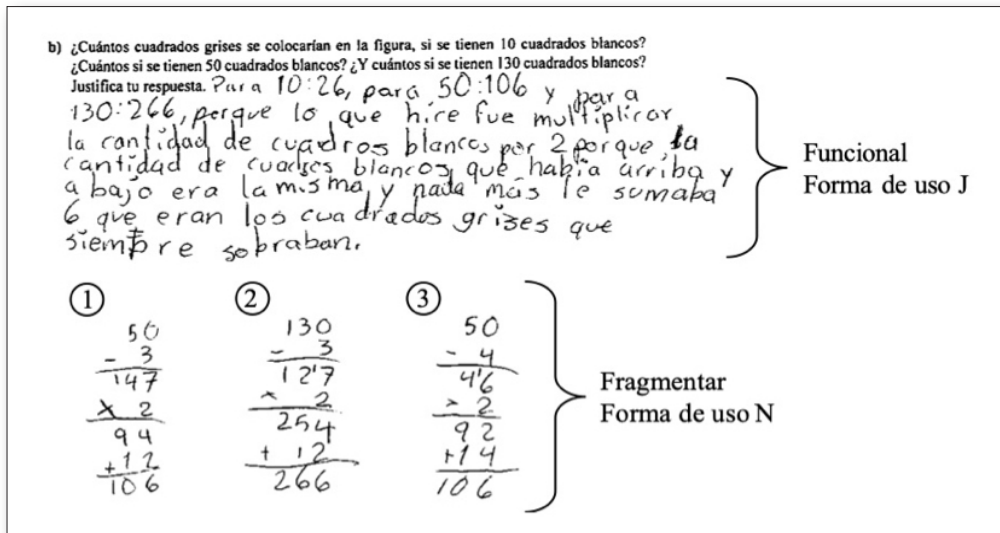 b) ¿Cuántos cuadrados grises se colocarían en la figura, si se tienen 10 cuadrados blancos?
¿Cuántos si se tienen 50 cuadrados blancos? ¿Y cuántos si se tienen 130 cuadrados blancos?
Justifica tu respuesta. Para 10:26, para 50:106 y para
130:266, porque lo que hice fue multiplicar
la cantidad de cuadros blancos por 2 porque la
cantidad de cuadros blancos que había arriba y
abajo era la misma y nada más le sumaba
6 que eran los cuadrados grises que
siempre sobraban.
Funcional
Forma de uso J
1 2 3
50 130 50
- 3 - 3 - 4
147 12'7 4'6
x 2 x 2 x 2
94 254 92
+12 + 12 +14
106 266 106
Fragmentar
Forma de uso N